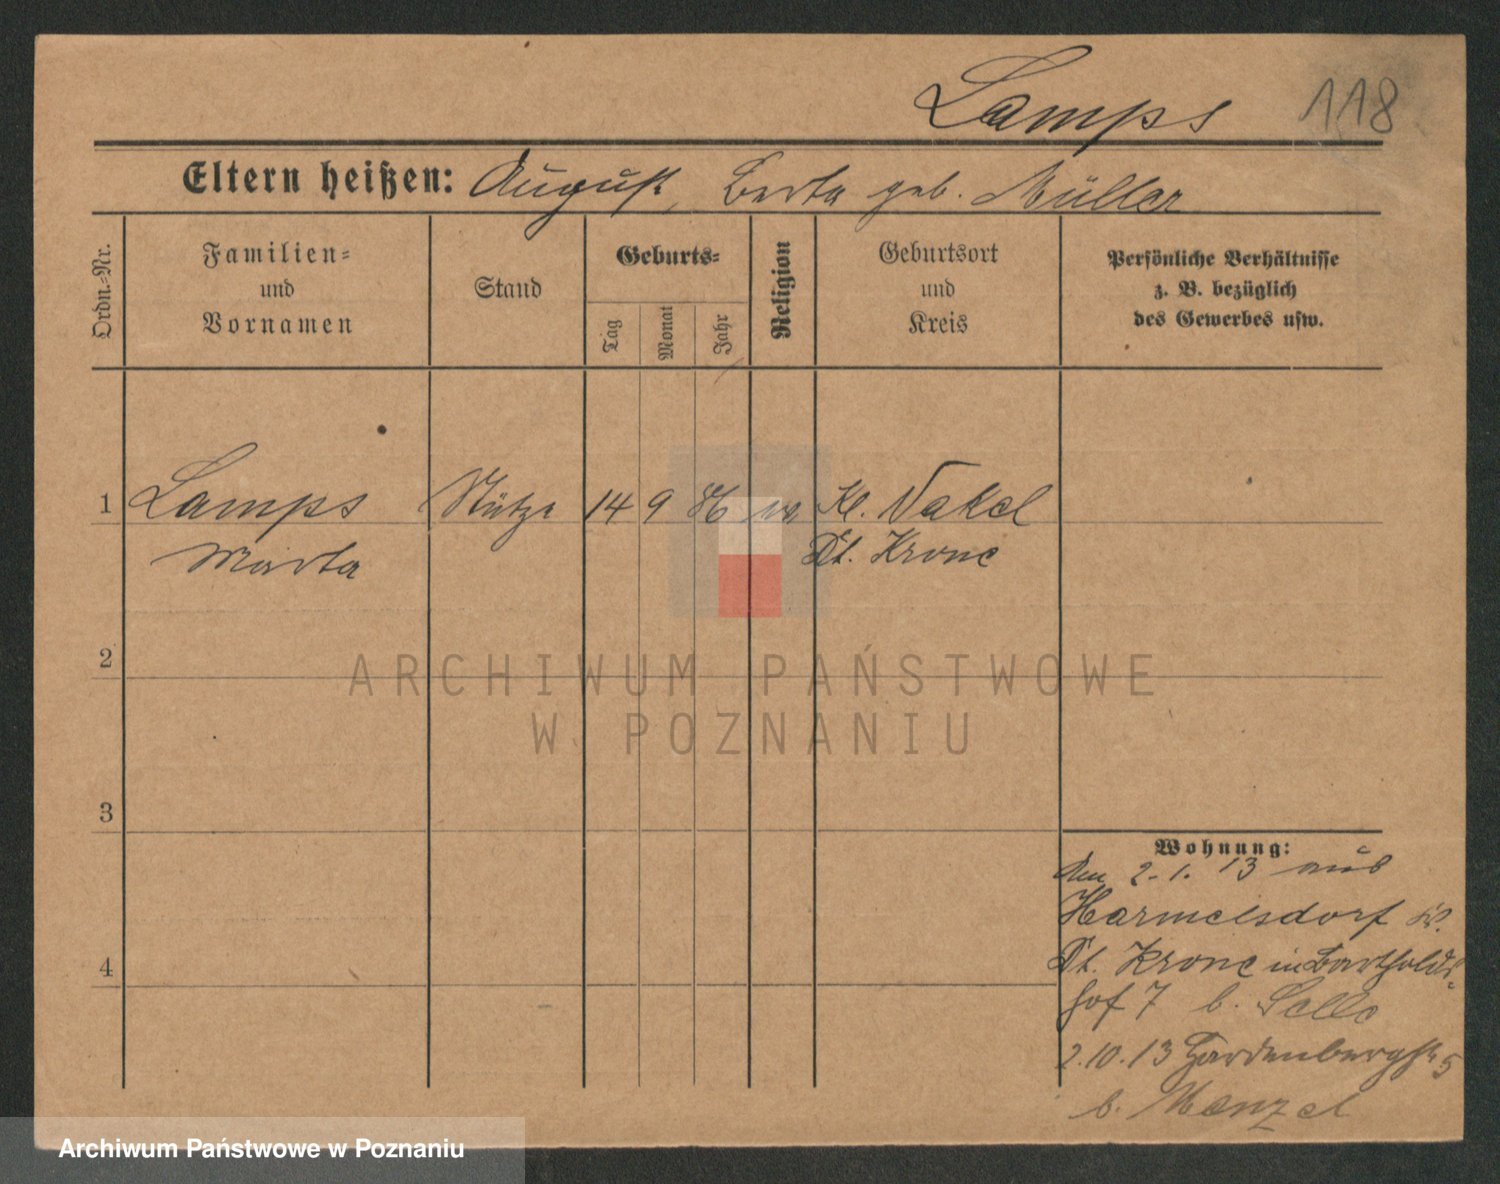 Lamps 118
Eltern heißen: August, Berta geb. Müller
Ordn.-Nr.
Familien-
und
Vornamen
Stand
Geburts-
Tag
Monat
Jahr
Religion
Geburtsort
und
Kreis
Persönliche Verhältnisse
z. B. bezüglich
des Gewerbes usw.
1 Lamps Stütze 14 9 86 Kl. Nakel
Marta Dt. Krone
2
ARCHIWUM PAŃSTWOWE
W POZNANIU
3
4
Wohnung:
Am 2.1.13 aus
Harmelsdorf Kr.
Dt. Krone in Bartholds-
hof 7 b. Selle
2.10.13 Hardenbergstr 5
b. Menzel
Archiwum Państwowe w Poznaniu